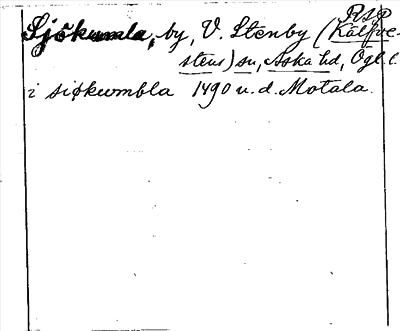 RSP
Sjökumla, by, V. Stenby (Kälfve-
stens) sn, Aska hd, Ögl.
i siøkwmbla 1490 u. d. Motala.